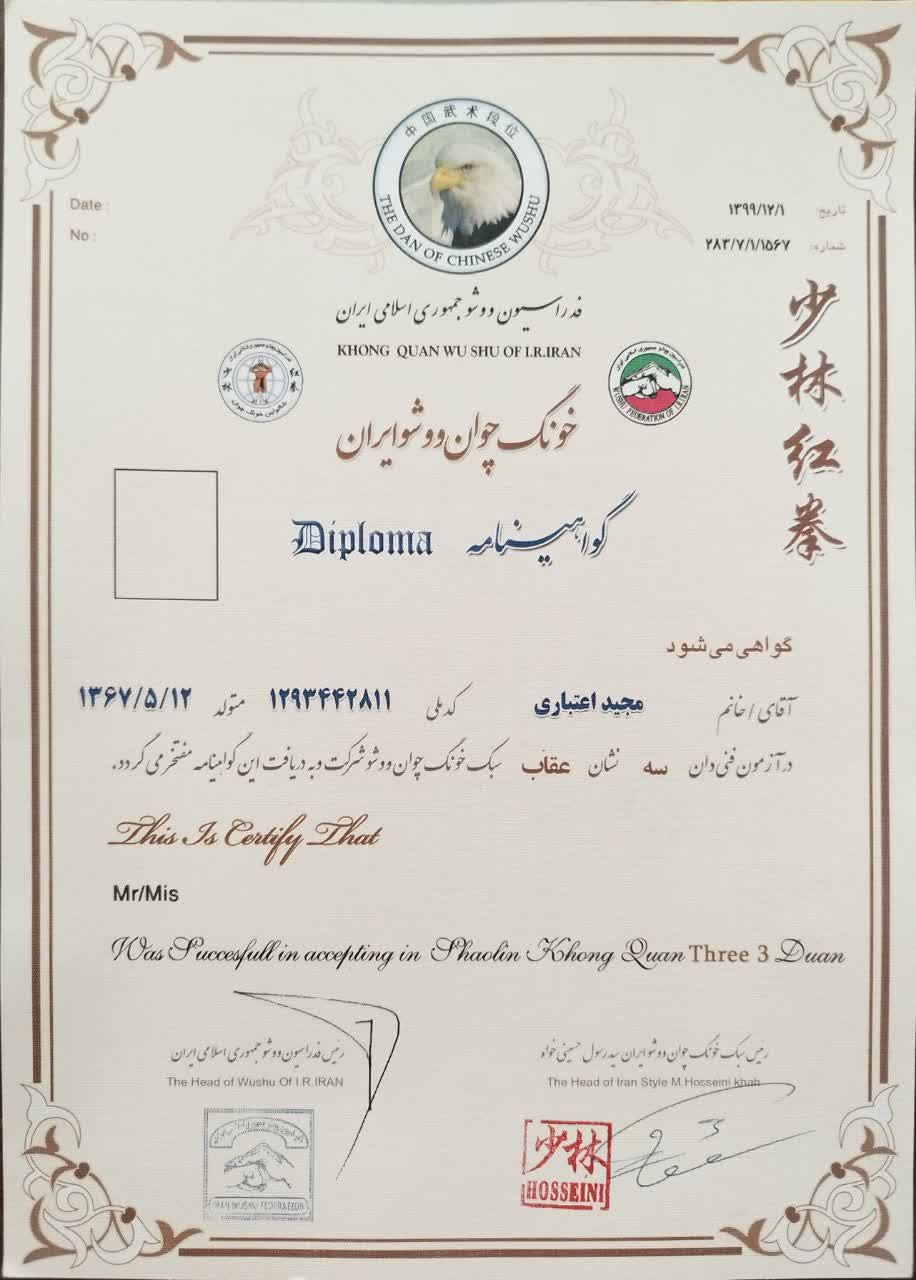 中国武术段位
THE DAN OF CHINESE WUSHU
Date :
No :
تاریخ: ۱۳۹۹/۱۲/۱
شماره: ۲۸۳/۷/۱/۱۵۶۷
فدراسیون ووشو جمهوری اسلامی ایران
KHONG QUAN WU SHU OF I.R.IRAN
WUSHU FEDERATION OF I.R.IRAN
خونگ چوان ووشو ایران
少林红拳
Diploma گواهینامه
گواهی می شود
آقای / خانم مجید اعتباری کد ملی ۱۲۹۳۴۴۲۸۱۱ متولد ۱۳۶۷/۵/۱۲
در آزمون فنی دان سه نشان عقاب سبک خونگ چوان ووشو شرکت و به دریافت این گواهینامه مفتخر می گردد.
This Is Certify That
Mr/Mis
Was Succesfull in accepting in Shaolin Khong Quan Three 3 Duan
رئیس سبک خونگ چوان ووشو ایران سید رسول حسینی خواه
The Head of Iran Style M.Hosseini khah
رئیس فدراسیون ووشو جمهوری اسلامی ایران
The Head of Wushu Of I.R.IRAN
少林
HOSSEINI
IRAN WUSHU FEDERATION